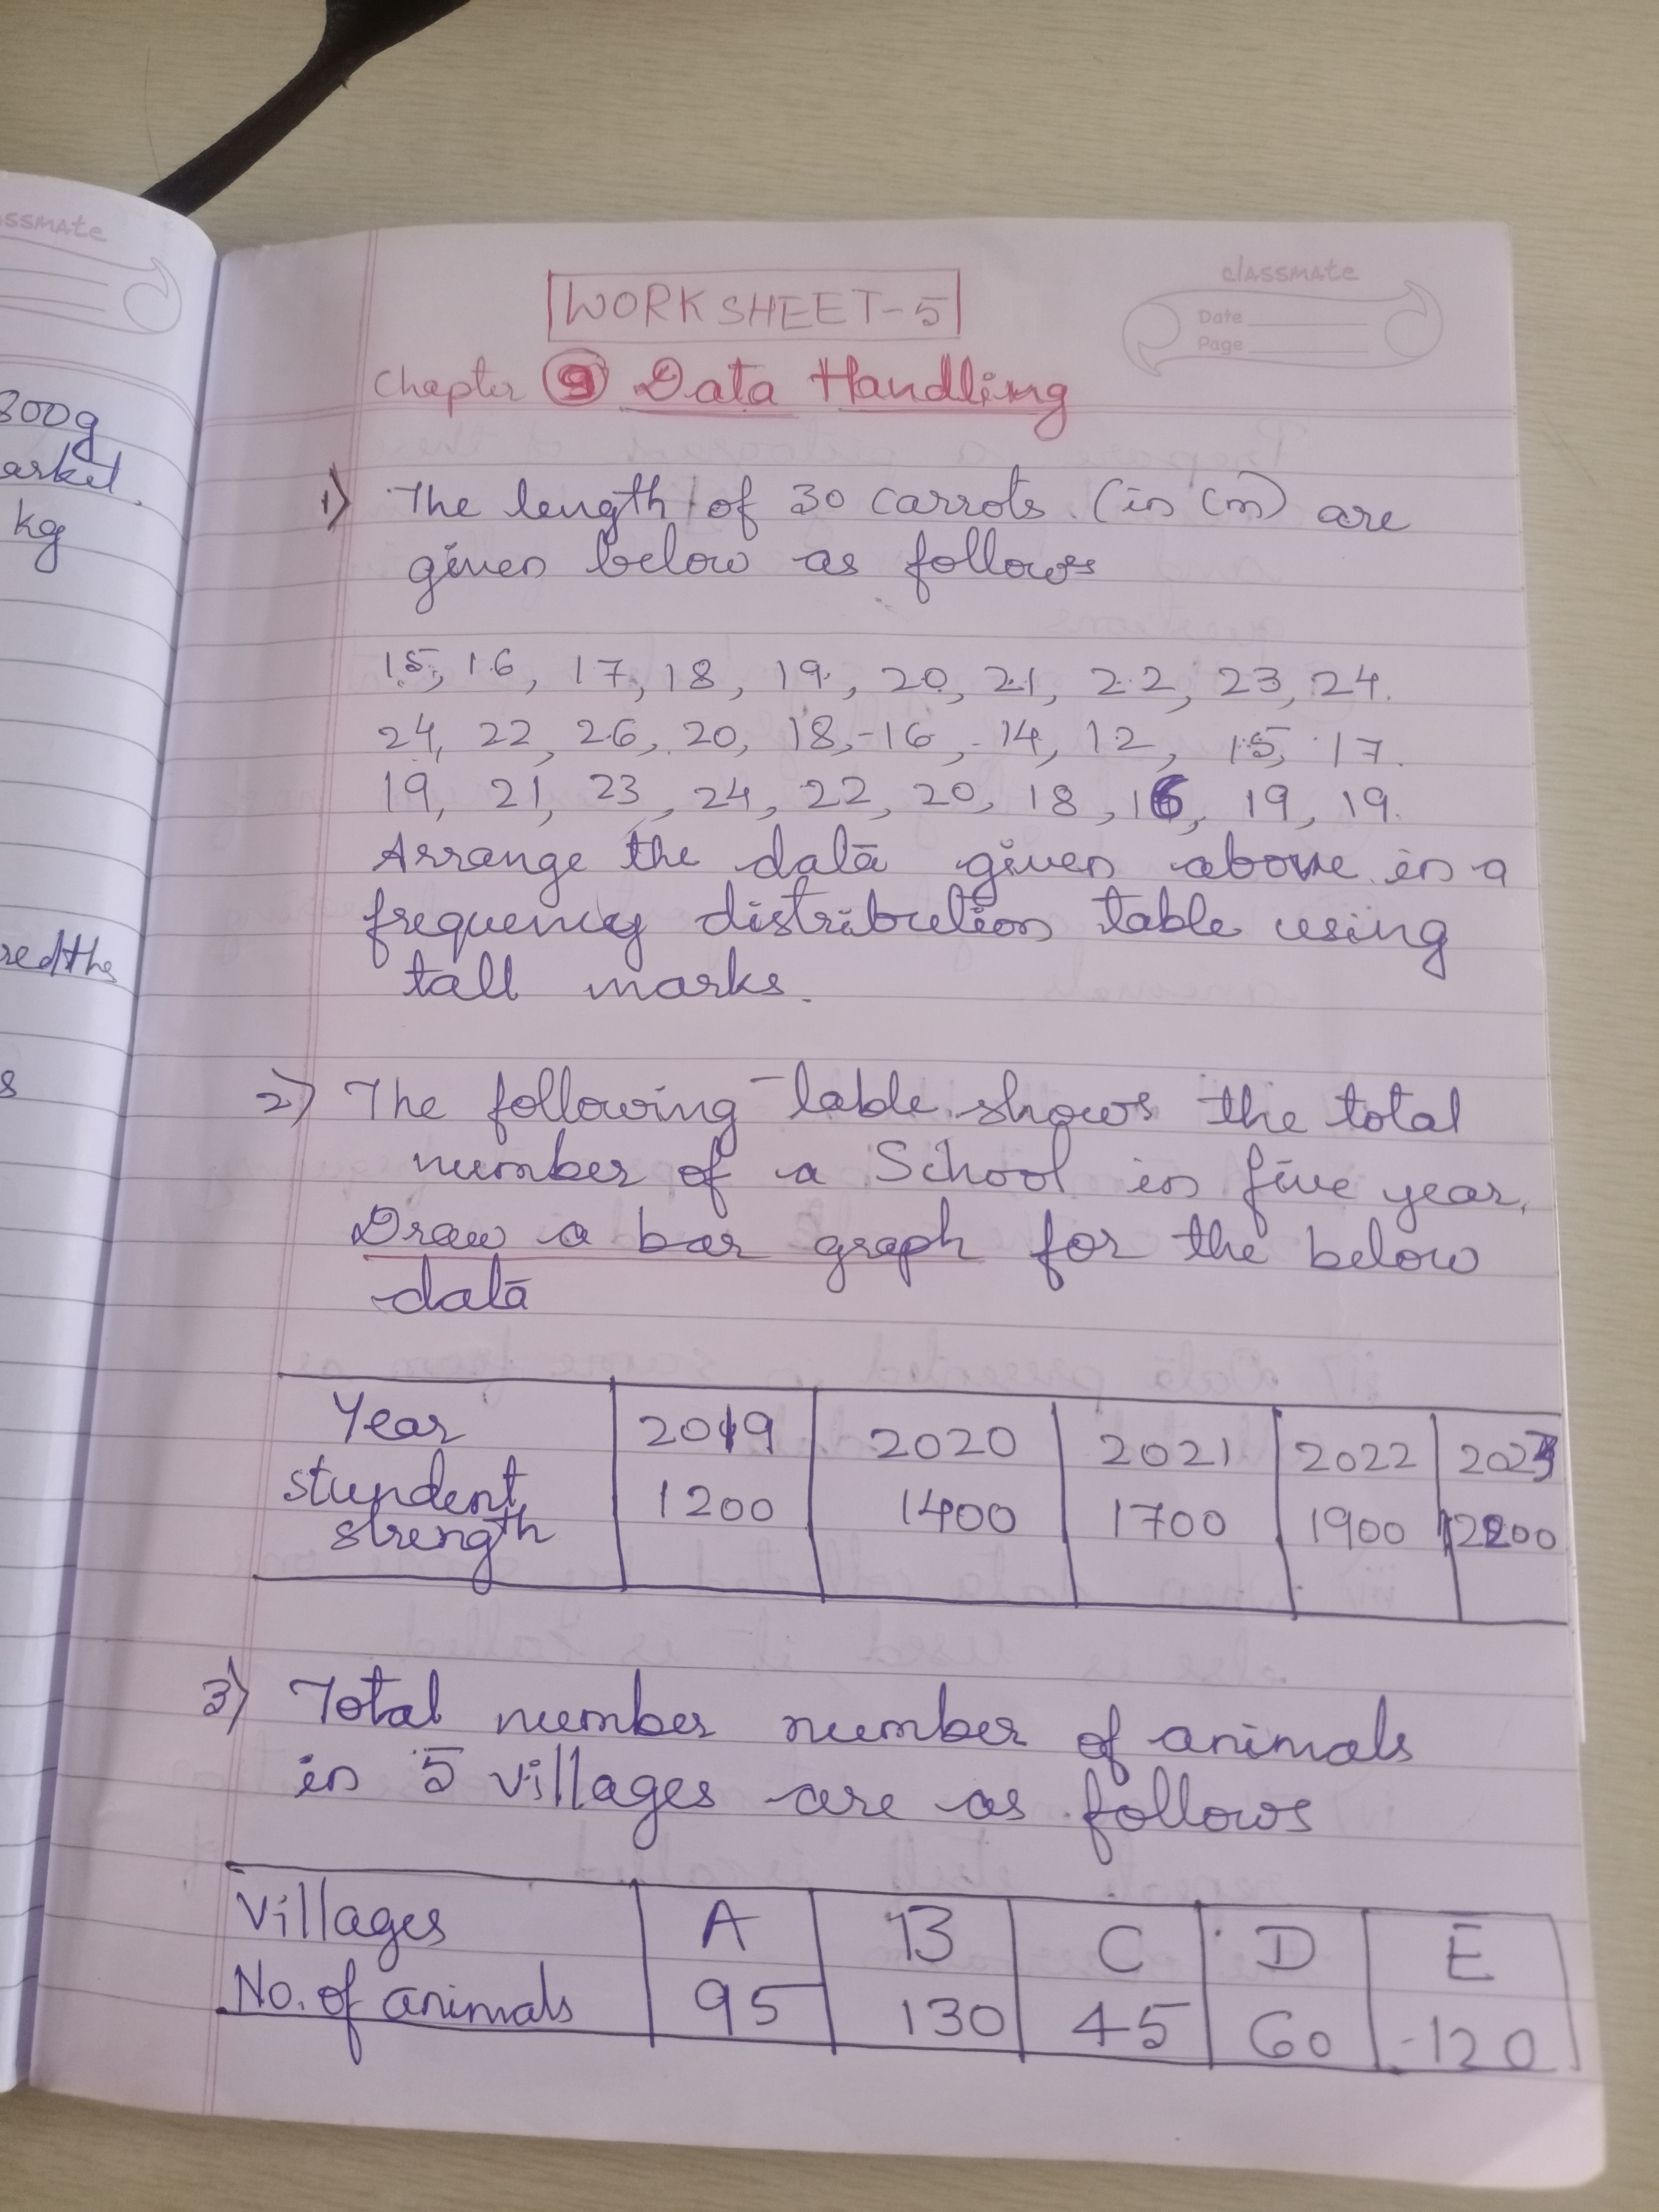 ssmate
classmate
Date
Page
800g
arket.
kg
redths
s
WORKSHEET-5
Chapter 9 Data Handling
1) The length of 30 carrots. (in cm) are
given below as follows
15, 16, 17, 18, 19, 20, 21, 22, 23, 24.
24, 22, 26, 20, 18, 16, 14, 12, 15, 17.
19, 21, 23, 24, 22, 20, 18, 16, 19, 19.
Arrange the data given above in a
frequency distribution table using
tall marks.
2) The following table shows the total
number of a School in five year,
Draw a bar graph for the below
data
Year 2019 2020 2021 2022 2023
stundent 1200 1400 1700 1900 2200
strength
3) Total number number of animals
in 5 villages are as follows
Villages A B C D E
No. of animals 95 130 45 60 120